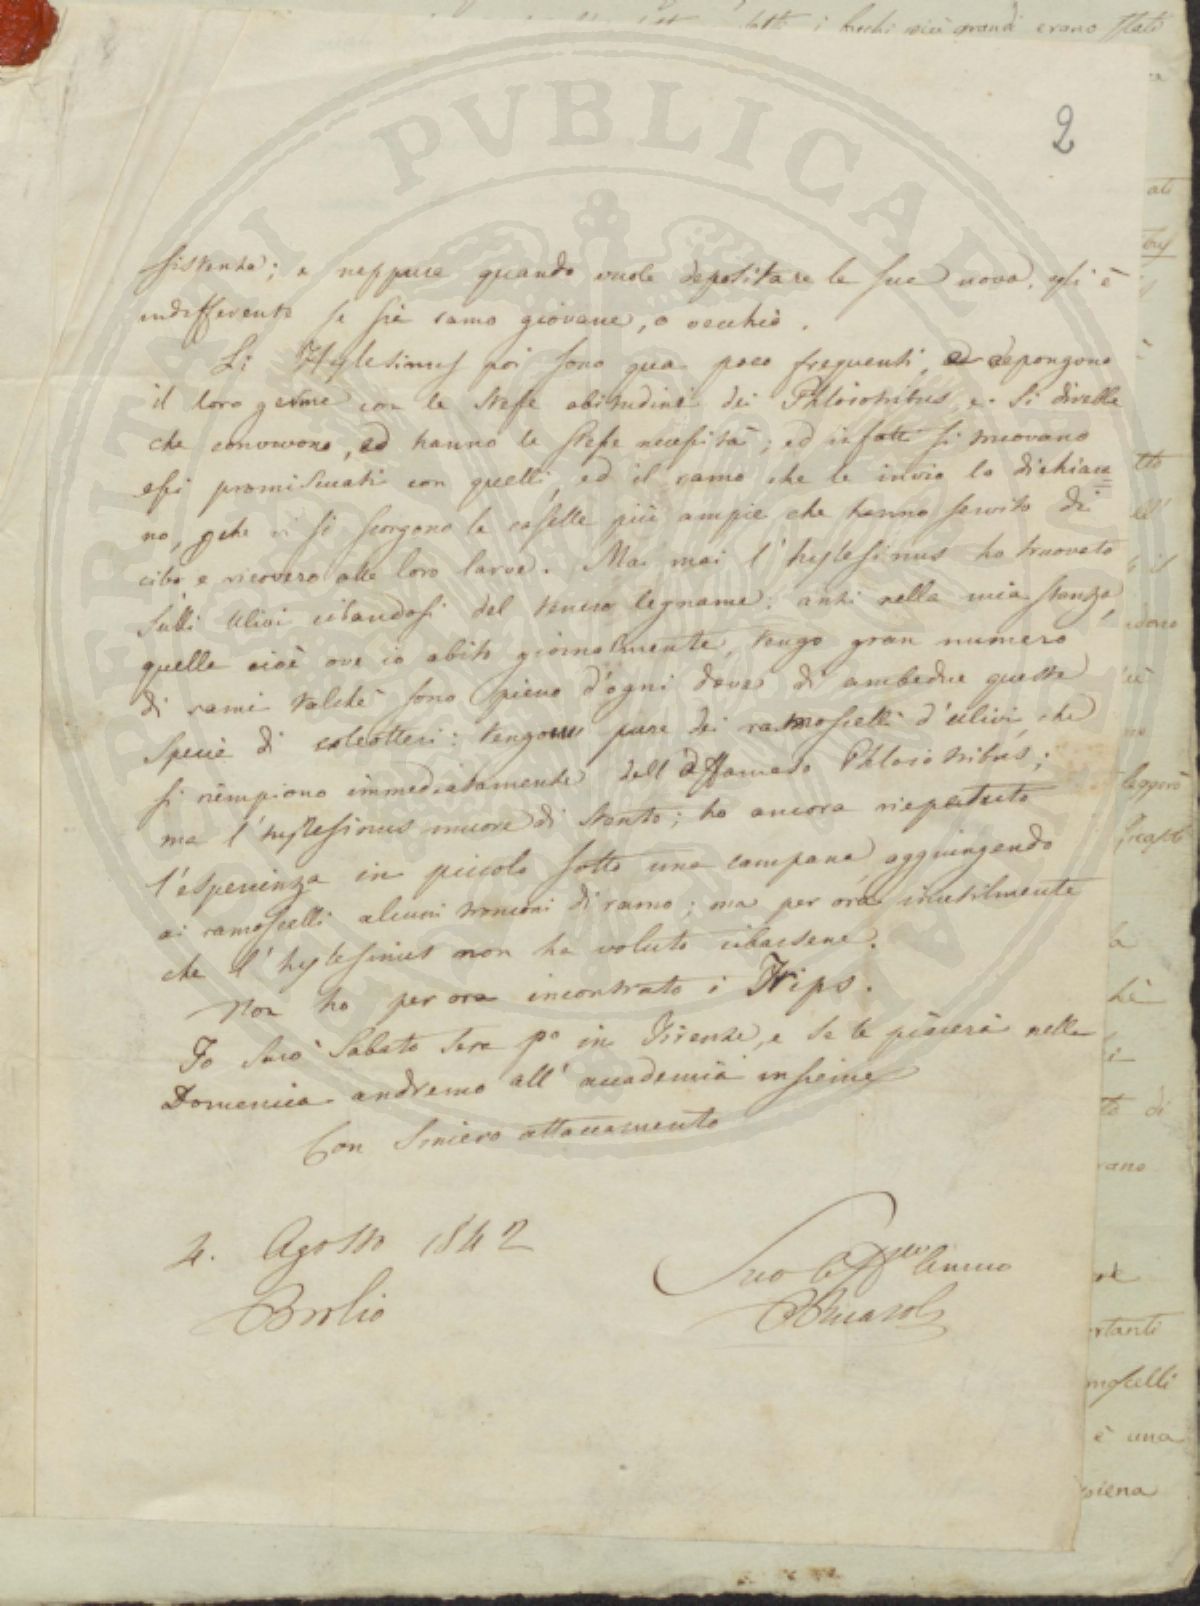 2
sistenza; e neppure quando vuole depositare le sue uova, gli è
indifferente se sia ramo giovane, o vecchio.
Li Hylesinus poi sono qua poco frequenti, depongono
il loro germe con le stesse abitudini dei Phloiotribus, e si direbbe
che convivono, ed hanno le stesse necessità; ed infatti si truovano
essi promiscuati con quelli, ed il ramo che le invio lo dichiara
no, che vi si scorgono le caselle più ampie che hanno servito di
cibo e ricovero alle loro larve. Ma mai l'hylesinus ho truovato
sulli ulivi cibandosi del tenero legname: anzi nella mia stanza,
quella cioè ove io abito giornalmente, tengo gran numero
di rami talchè sono pieno d'ogni dove di ambedue queste
specie di coleotteri: tengo pure dei ramoscelli d'ulivi, che
si riempiono immediatamente dell'affamato Phloiotribus;
ma l'hylesinus muore di stento; ho ancora ripetuto
l'esperienza in piccolo sotto una campana, aggiungendo
ai ramoscelli alcuni tronconi di ramo; ma per ora inutilmente
che l'hylesinus non ha voluto cibarsene.
Non ho per ora incontrato i Trips.
Io sarò Sabato sera po in Firenze, e se le piacerà nella
Domenica andremo all'accademia insieme
Con sincero attaccamento
4. Agosto 1842
Brolio
Suo Amico
BRicasoli